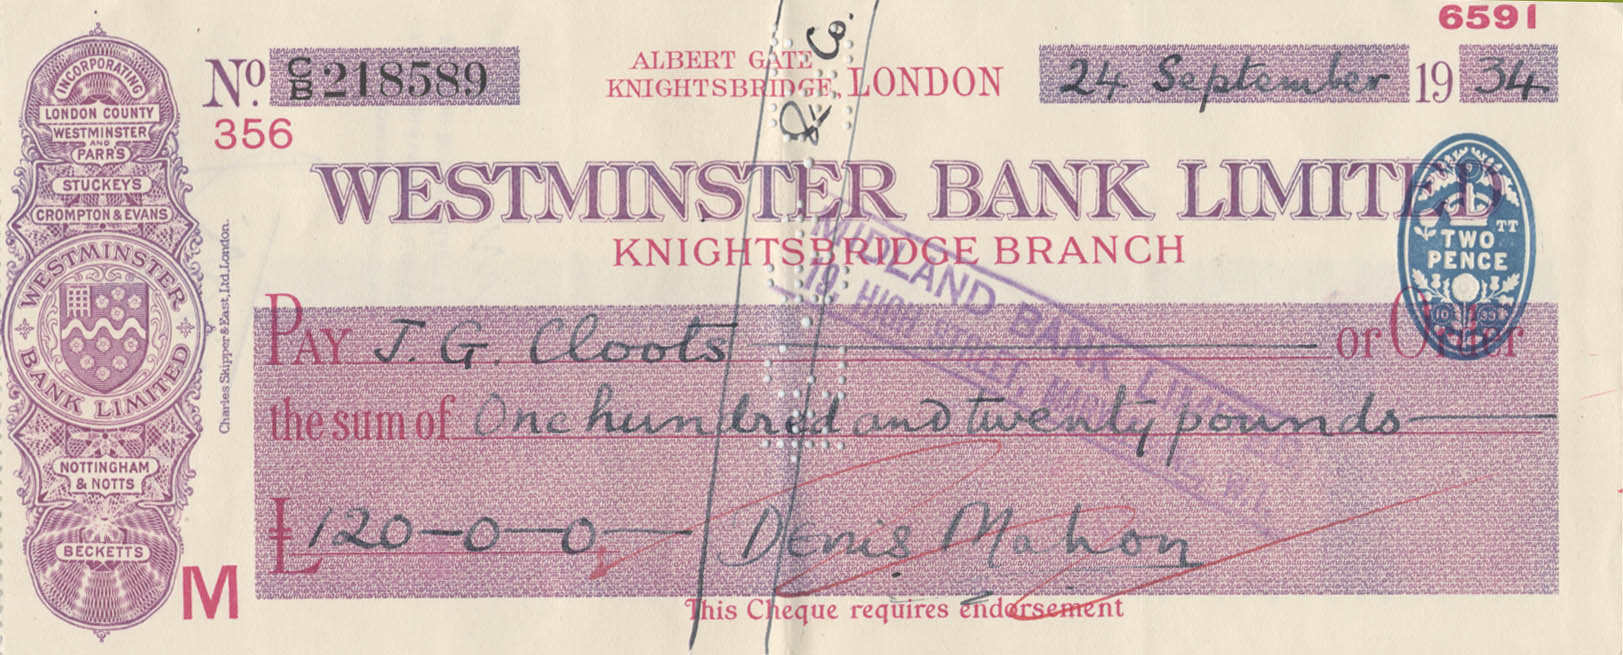 6591
INCORPORATING
LONDON COUNTY
WESTMINSTER
AND
PARR'S
STUCKEYS
CROMPTON & EVANS
WESTMINSTER
BANK LIMITED
NOTTINGHAM
& NOTTS
BECKETTS
Charles Skipper & East, Ltd. London.
No. C/B 218589
356
ALBERT GATE
KNIGHTSBRIDGE, LONDON
24 September 1934
& Co.
WESTMINSTER BANK LIMITED
KNIGHTSBRIDGE BRANCH
TWO
PENCE
TT
MIDLAND BANK LIMITED
19, HIGH STREET,
W.1.
PAY J. G. Cloots or Order
the sum of One hundred and twenty pounds
£120-0-0 Denis Mahon
M
This Cheque requires endorsement